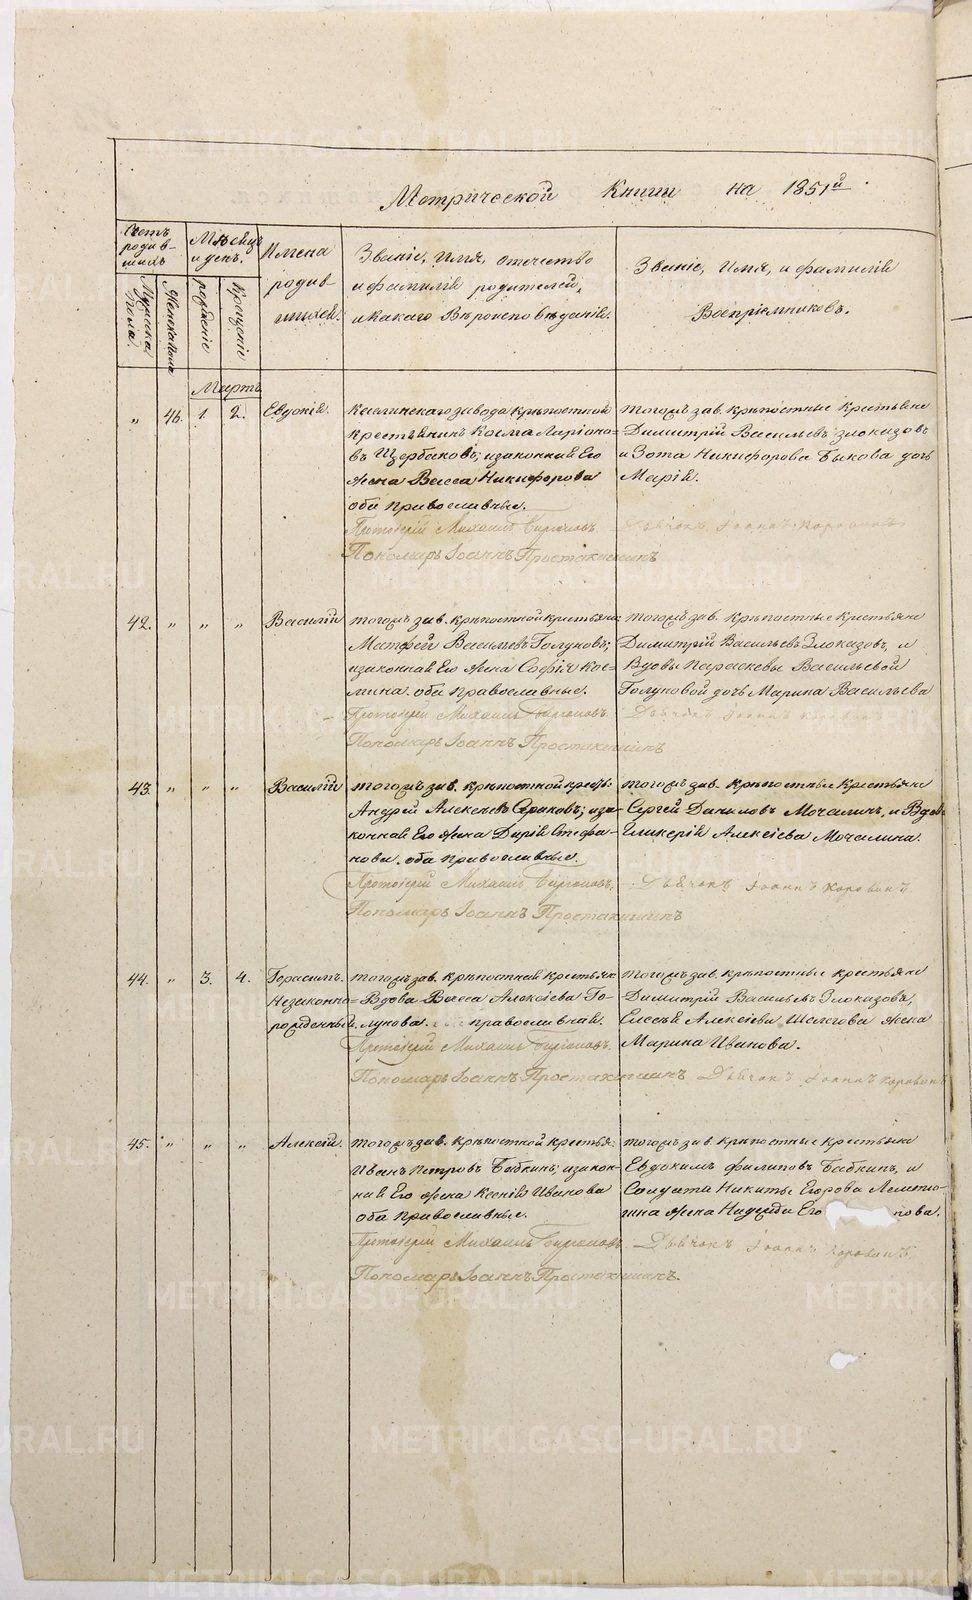 Метрической Книги на 1851й
Счетъ родившихъ
Мѣсяцъ и день.
Имена родившихся.
Званіе, Имя, отечество
и фамилія родителей,
и какаго Вѣроисповѣданія.
Званіе, Имя, и фамилія
Воспріемниковъ.
Мужска пола.
Женска пола
рожденіе
Крещеніе
Мартъ
" 46. 1. 2. Евдокія.
Каслинскаго завода крѣпостной
крестьянинъ Косма Ларіоно-
въ Щербаковъ; и законная Его
жена Васса Никифорова
оба православные.
Протоіерей Михаилъ
Пономарь Іоаннъ Простакишинъ
тогожъ зав. крѣпостные крестьяне
Димитрій Васильевъ Злоказовъ
и Зота Никифорова Быкова дочь
Марія.
Дьячокъ Іоаннъ Коровинъ
42. " " " Василій
тогожъ зав. крѣпостной крестьянин
Матфей Васильевъ Голуновъ;
и законная Его жена Софія Кос-
мина. оба православные.
Протоіерей Михаилъ
Пономарь Іоаннъ Простакишинъ
тогожъ зав. крѣпостные крестьяне
Димитрій Васильевъ Злоказовъ, и
Вдовы Параскевы Васильевой
Голуновой дочь Марина Васильева
Дьячокъ Іоаннъ Коровинъ
43. " " " Василій
тогожъ зав. крѣпостной кресть.
Андрей Алексѣевъ; и за-
конная Его жена Дарія Стефа-
нова. оба православные.
Протоіерей Михаилъ
Пономарь Іоаннъ Простакишинъ
тогожъ зав. крѣпостные крестьяне
Сергей Даниловъ Мочалинъ, и Вдова
Гликерія Алексіева Мочалина.
Дьячокъ Іоаннъ Коровинъ.
44. " 3. 4. Герасимъ.
Незаконно-
рожденный.
тогожъ зав. крѣпостная крестьян
Вдова Васса Алексіева Го-
лунова. православная.
Протоіерей Михаилъ
Пономарь Іоаннъ Простакишинъ
тогожъ зав. крѣпостные крестьяне
Димитрій Васильевъ Злоказовъ,
Елисея Алексіева жена
Марина Иванова.
Дьячокъ Іоаннъ Коровинъ
45. " " " Алексій.
тогожъ зав. крѣпостной крестья.
Иванъ Петровъ Бабкинъ; и закон-
ная Его жена Ксенія Иванова
оба православные.
Протоіерей Михаилъ
Пономарь Іоаннъ Простакишинъ.
тогожъ зав. крѣпостные крестьяне
Евдокимъ Филиповъ Бабкинъ, и
Солдата Никиты Егорова
жена Надежда Его пова.
Дьячокъ Іоаннъ Коровинъ
METRIKI.GASO-URAL.RU